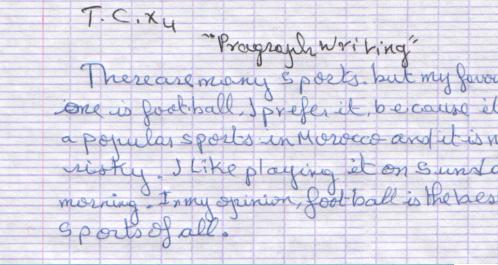 T.C.X4
"Pragraph writing"
There are many sports. but my favou
one is football, I prefer it, because i
a popular sports in Morocco and it is n
risky. I like playing it on Sunda
morning. In my opinion, football is the bes
sports of all.